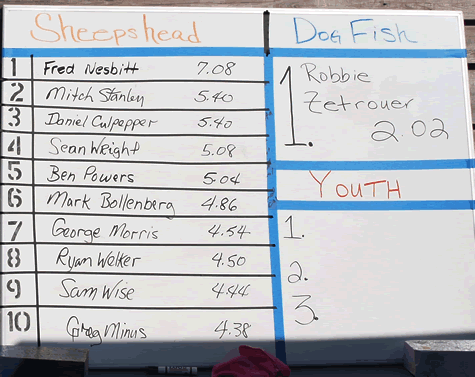 Sheepshead
1 Fred Nesbitt 7.08
2 Mitch Stanley 5.40
3 Daniel Culpepper 5.40
4 Sean Weight 5.08
5 Ben Powers 5.04
6 Mark Bollenberg 4.86
7 George Morris 4.54
8 Ryan Welker 4.50
9 Sam Wise 4.44
10 Greg Minus 4.38
Dog Fish
1. Robbie
Zetrouer
2.02
YOUTH
1.
2.
3.